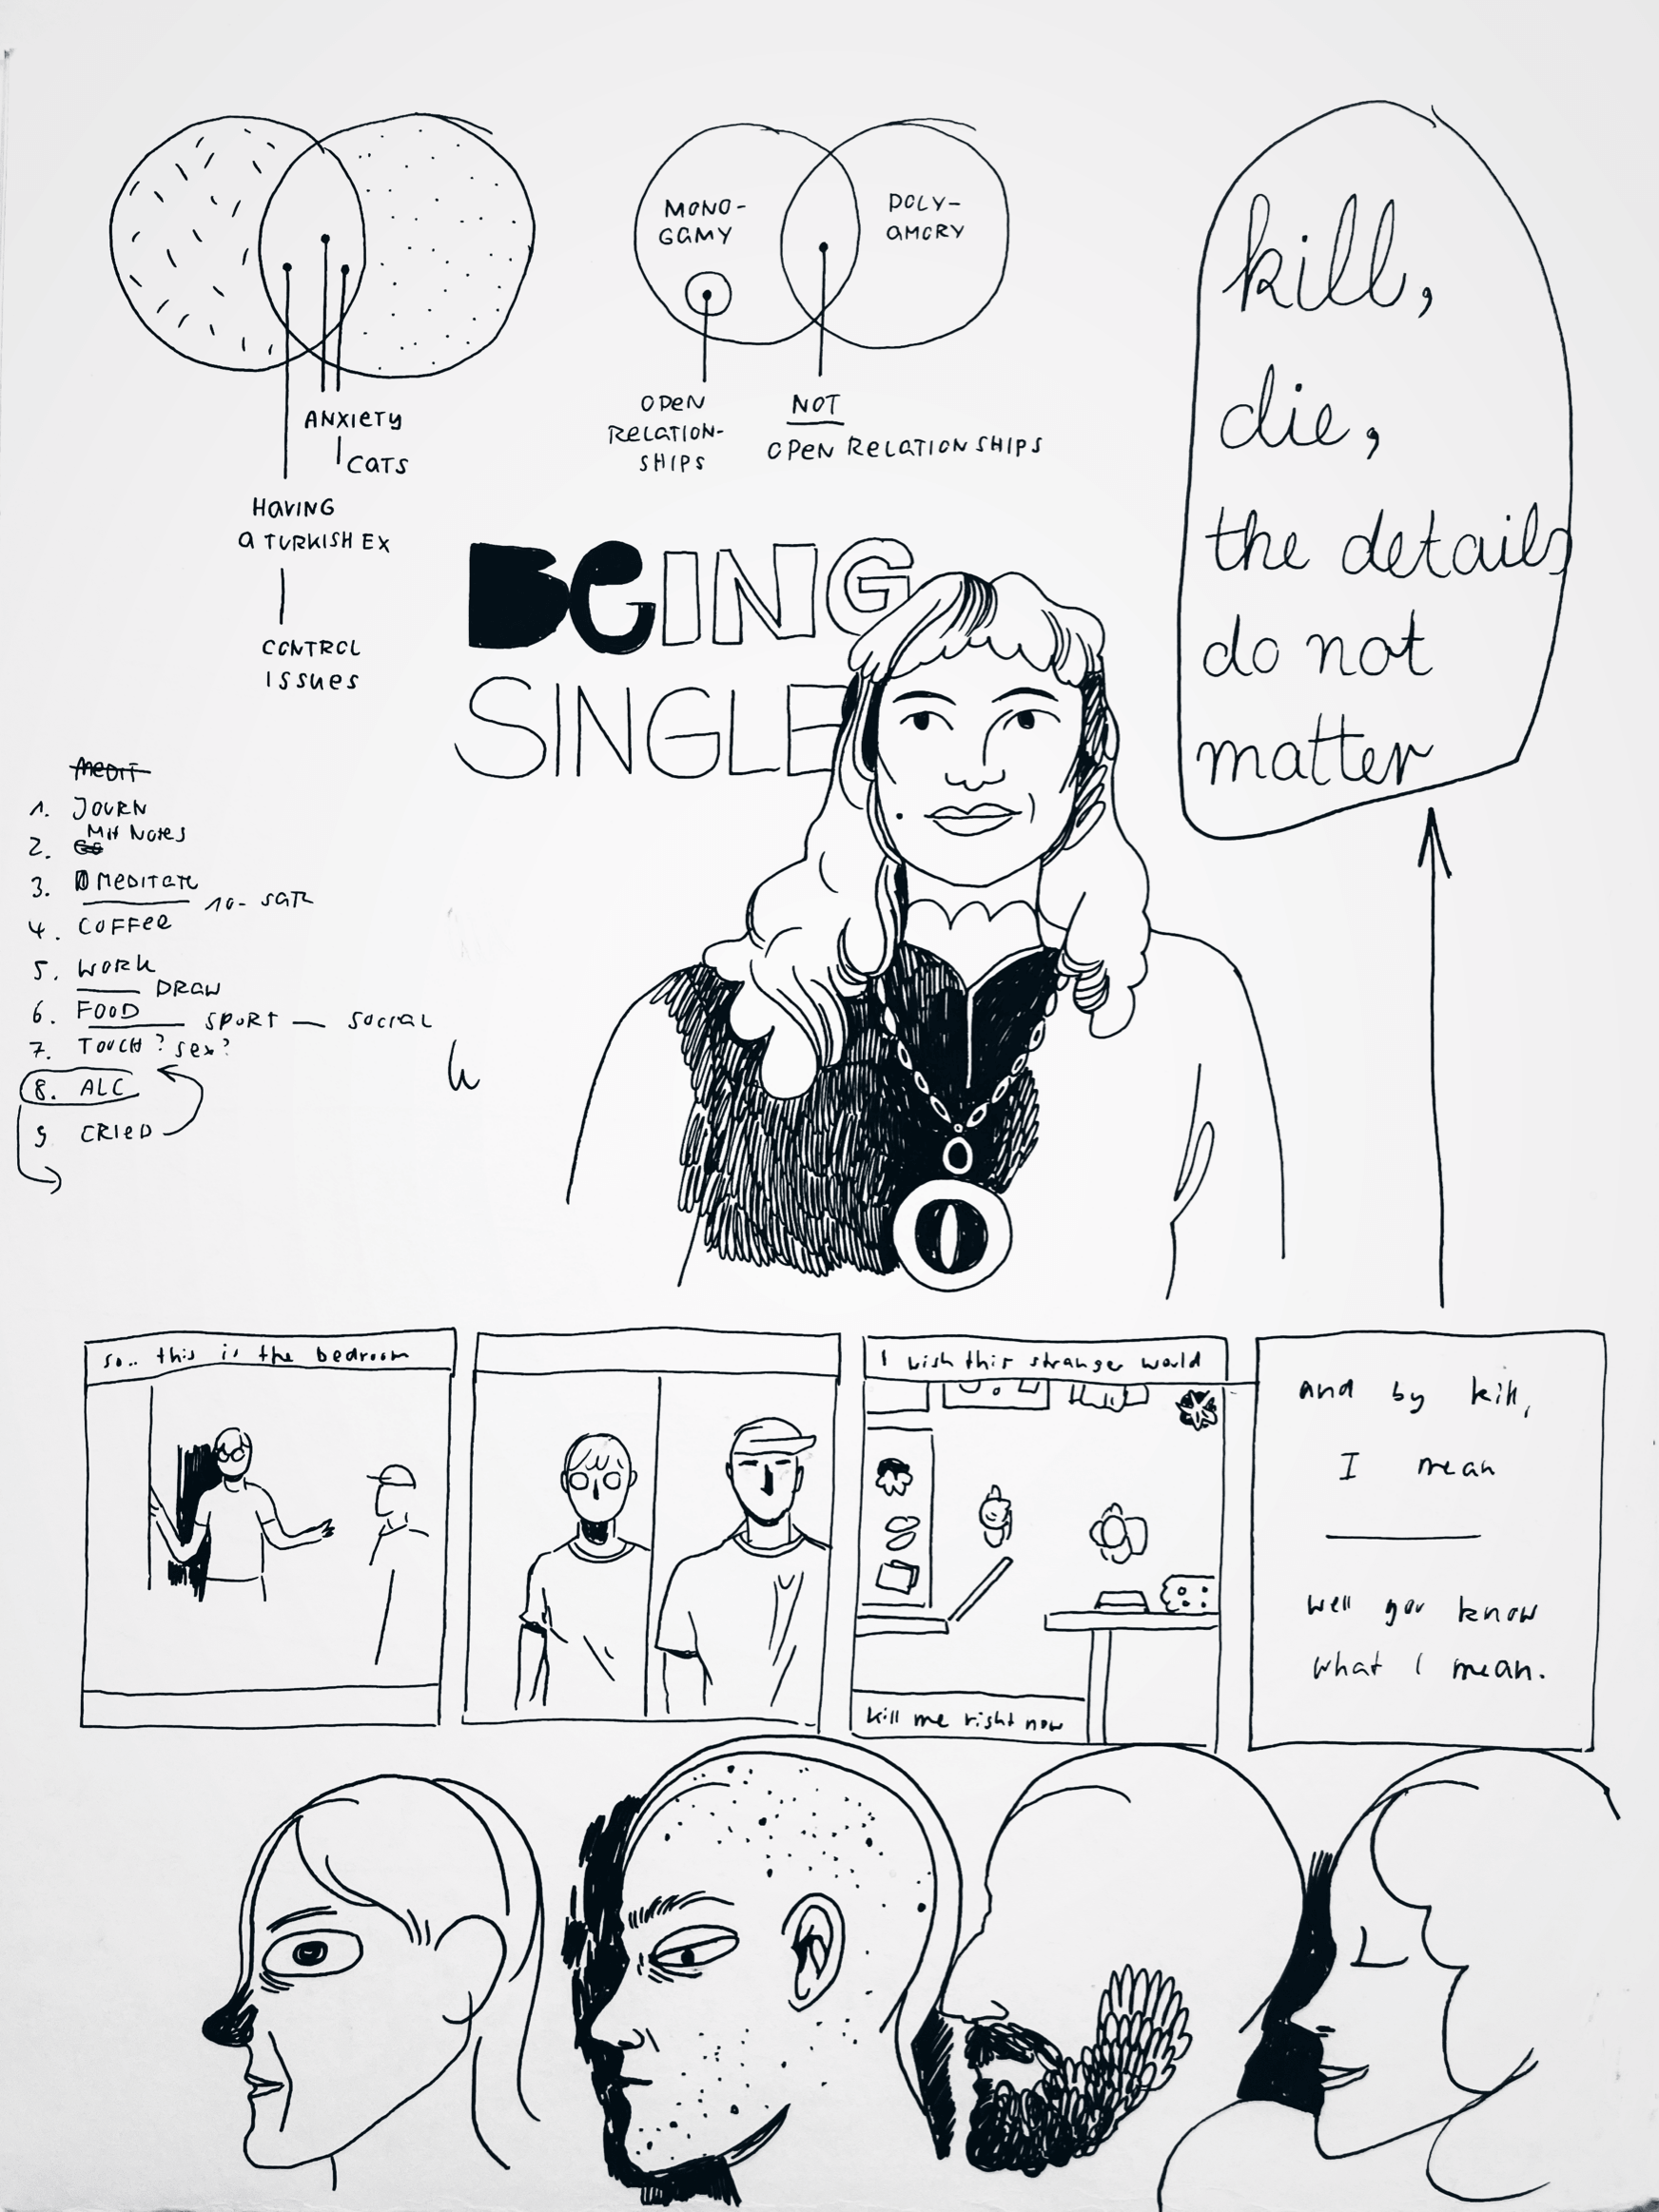 ANXIETY
CATS
HAVING
A TURKISH EX
CONTROL
ISSUES
MONO-
GAMY
POLY-
AMORY
OPEN
RELATION-
SHIPS
NOT
OPEN RELATIONSHIPS
kill,
die,
the details
do not
matter
BEING
SINGLE
MEDIT
1. JOURN
2. Mit Notes
3. MEDITATE
4. COFFEE
5. WORK
DRAW
6. FOOD SPORT — SOCIAL
7. TOUCH? SEX?
8. ALC
9 CRIED
so.. this is the bedroom
I wish this stranger would
kill me right now
And by kill,
I mean
well you know
what I mean.